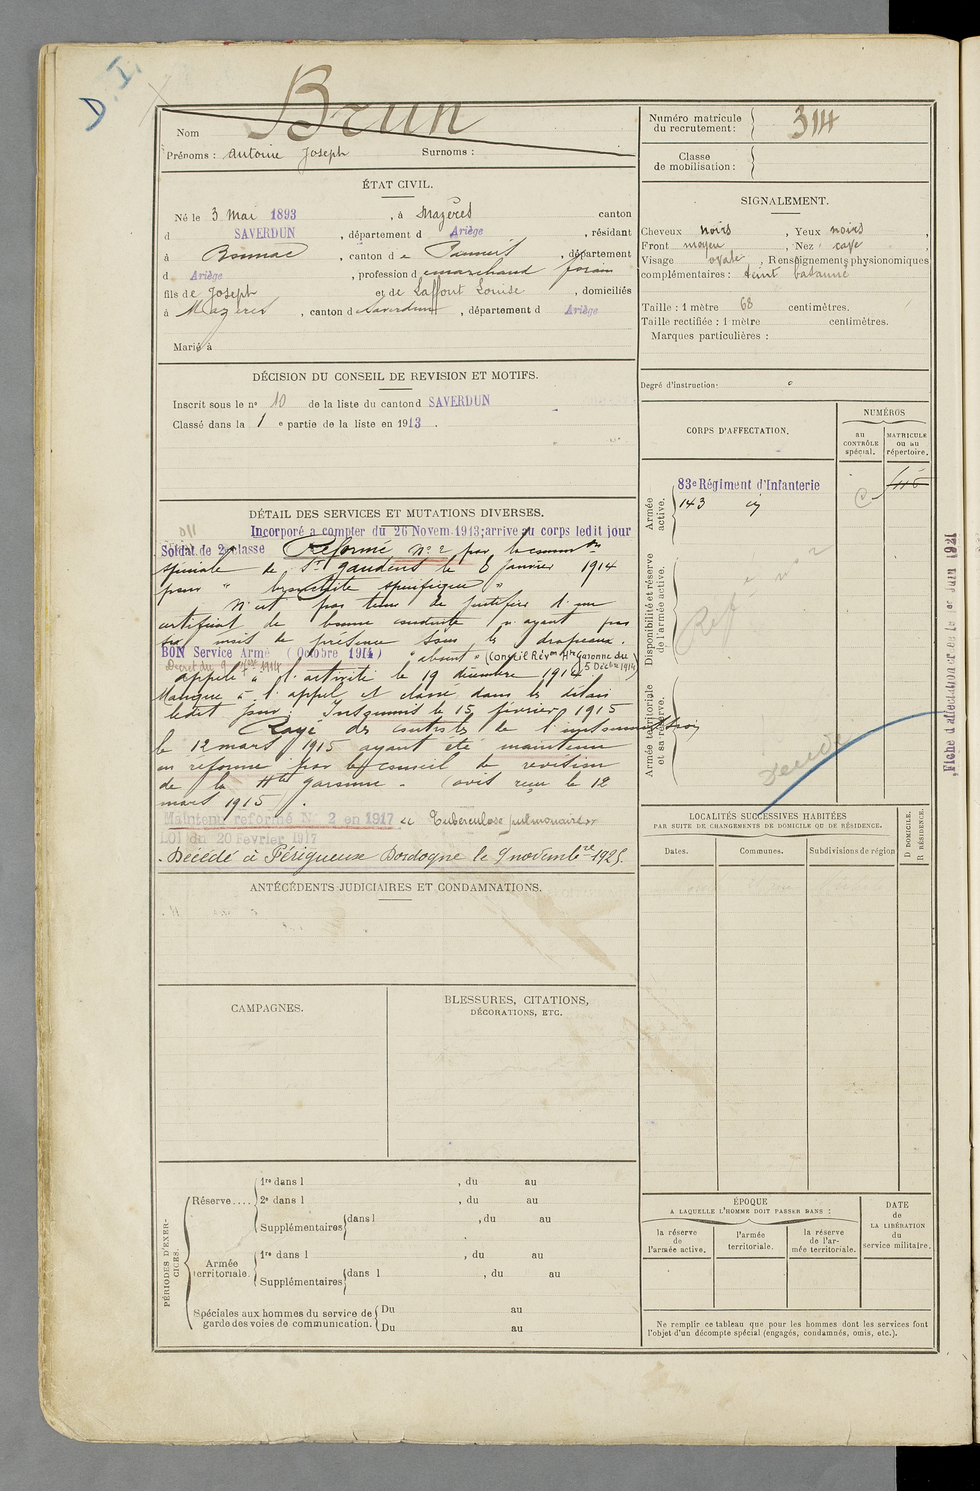 D. I.
Nom Brun
Prénoms : Antoine Joseph Surnoms :
ÉTAT CIVIL.
Né le 3 Mai 1893, à Mazères canton
d SAVERDUN, département d Ariège, résidant
à Bonnac, canton de Pamiers, département
d Ariège, profession de marchand forain
fils de Joseph et de Laffont Louise, domiciliés
à Mazères, canton d Saverdun, département d Ariège
Marié à
DÉCISION DU CONSEIL DE REVISION ET MOTIFS.
Inscrit sous le n° 10 de la liste du canton d SAVERDUN
Classé dans la 1 e partie de la liste en 1913.
DÉTAIL DES SERVICES ET MUTATIONS DIVERSES.
Incorporé a compter du 26 Novem. 1913; arrivé au corps ledit jour
Soldat de 2e classe Réformé N° 2 par la comm
spéciale de St Gaudens le 6 Janvier 1914
pour " bronchite spécifique "
N'est pas tenu de justifier d'un
certificat de bonne conduite n'ayant pas
six mois de présence sous les drapeaux.
BON Service Armé (Octobre 1914) "absent" (Conseil Rév on Hte Garonne du
Décret du 9 1914 5 Décbre 1914)
appelé à l'activité le 19 décembre 1914
Manque à l'appel et classé dans les délais
ledit jour. Insoumis le 15 février 1915
Rayé des contrôles de l'insoumission
le 12 mars 1915 ayant été maintenu
en réforme par le conseil de revision
de la Hte Garonne. avis reçu le 12
mars 1915.
Maintenu réformé N° 2 en 1917 " Tuberculose pulmonaire "
LOI du 20 Février 1917
Décédé à Périgueux Dordogne le 9 novembre 1925.
ANTÉCÉDENTS JUDICIAIRES ET CONDAMNATIONS.
CAMPAGNES.
BLESSURES, CITATIONS,
DÉCORATIONS, ETC.
PÉRIODES D'EXERCICES.
Réserve.... 1re dans l , du au
2e dans l , du au
Supplémentaires dans l , du au
Armée territoriale. 1re dans l , du au
Supplémentaires dans l , du au
Spéciales aux hommes du service de garde des voies de communication. Du au
Du au
Numéro matricule
du recrutement : 314
Classe
de mobilisation :
SIGNALEMENT.
Cheveux noirs, Yeux noirs,
Front moyen, Nez cave
Visage ovale, Renseignements physionomiques
complémentaires : teint basanné
Taille : 1 mètre 68 centimètres.
Taille rectifiée : 1 mètre centimètres.
Marques particulières :
Degré d'instruction :
CORPS D'AFFECTATION.
NUMÉROS
au
CONTRÔLE
spécial.
MATRICULE
ou au
répertoire.
Armée
active.
83e Régiment d'Infanterie
143
Disponibilité et réserve
de l'armée active.
Réf n° 2
Armée territoriale
et sa réserve.
Décédé
Fiche d'affectation créée le 1er Juin 1921
LOCALITÉS SUCCESSIVES HABITÉES
PAR SUITE DE CHANGEMENTS DE DOMICILE OU DE RÉSIDENCE.
Dates.
Communes.
Subdivisions de région
D DOMICILE.
R RÉSIDENCE.
ÉPOQUE
A LAQUELLE L'HOMME DOIT PASSER DANS :
la réserve
de
l'armée active.
l'armée
territoriale.
la réserve
de l'ar-
mée territoriale.
DATE
de
LA LIBÉRATION
du
service militaire.
Ne remplir ce tableau que pour les hommes dont les services font
l'objet d'un décompte spécial (engagés, condamnés, omis, etc.).